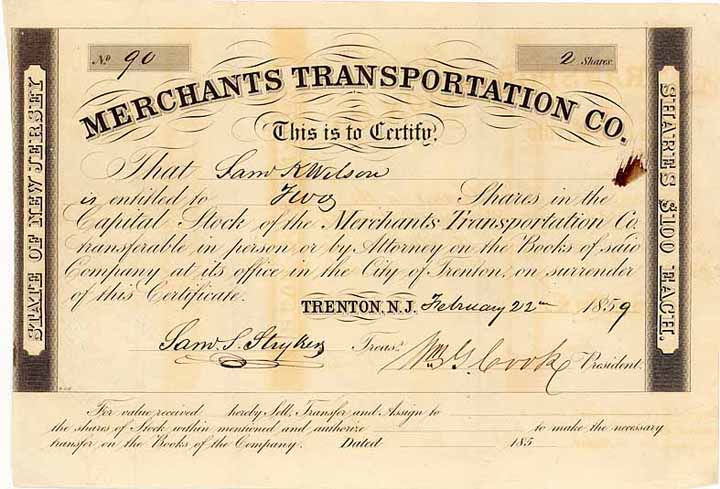 No. 90
2 Shares.
MERCHANTS TRANSPORTATION CO.
This is to Certify,
That Saml K Wilson
is entitled to Two Shares in the
Capital Stock of the Merchants Transportation Co.
transferable in person or by Attorney on the Books of said
Company at its office in the City of Trenton, on surrender
of this Certificate.
TRENTON, N.J. February 22nd 1859
Saml S. Stryker Treasr. Wm G. Cook President.
STATE OF NEW JERSEY
SHARES $100 EACH.
For value received hereby Sell, Transfer and Assign to
the shares of Stock within mentioned and authorize to make the necessary
transfer on the Books of the Company. Dated 185